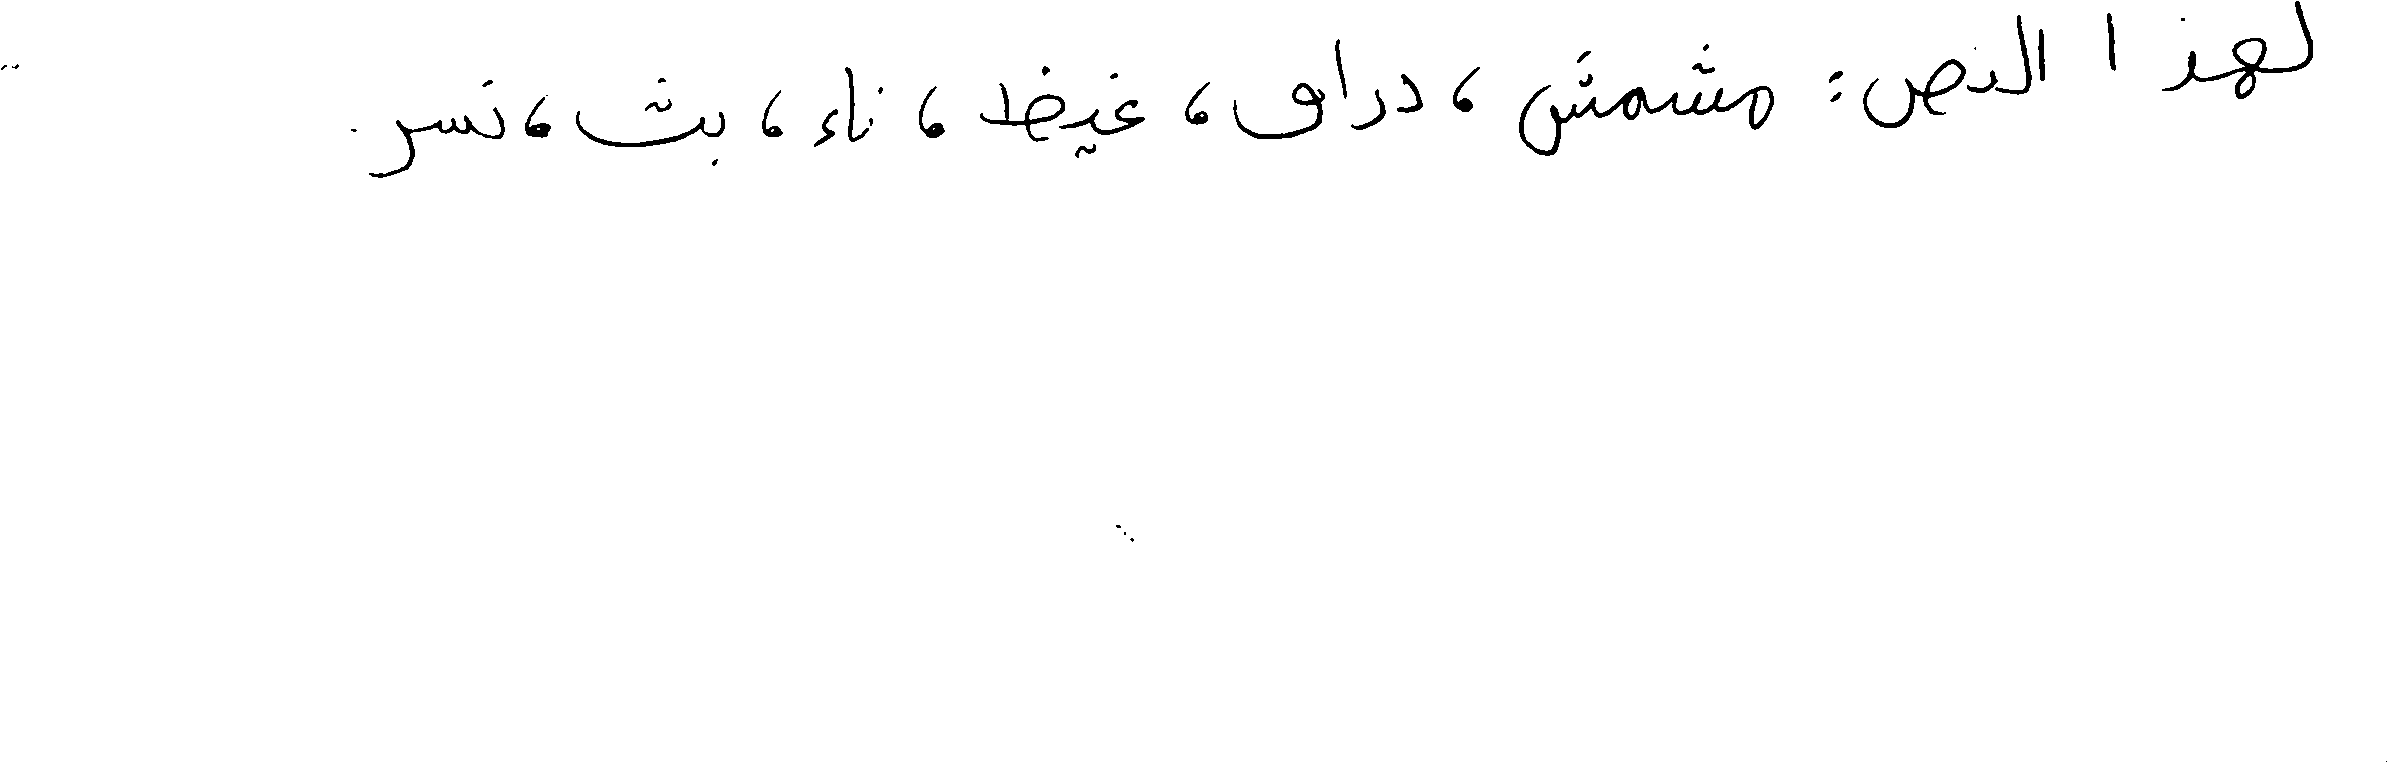 لهذا النص: مشمش، دراق، غيظ، ناء، بث، نسر.